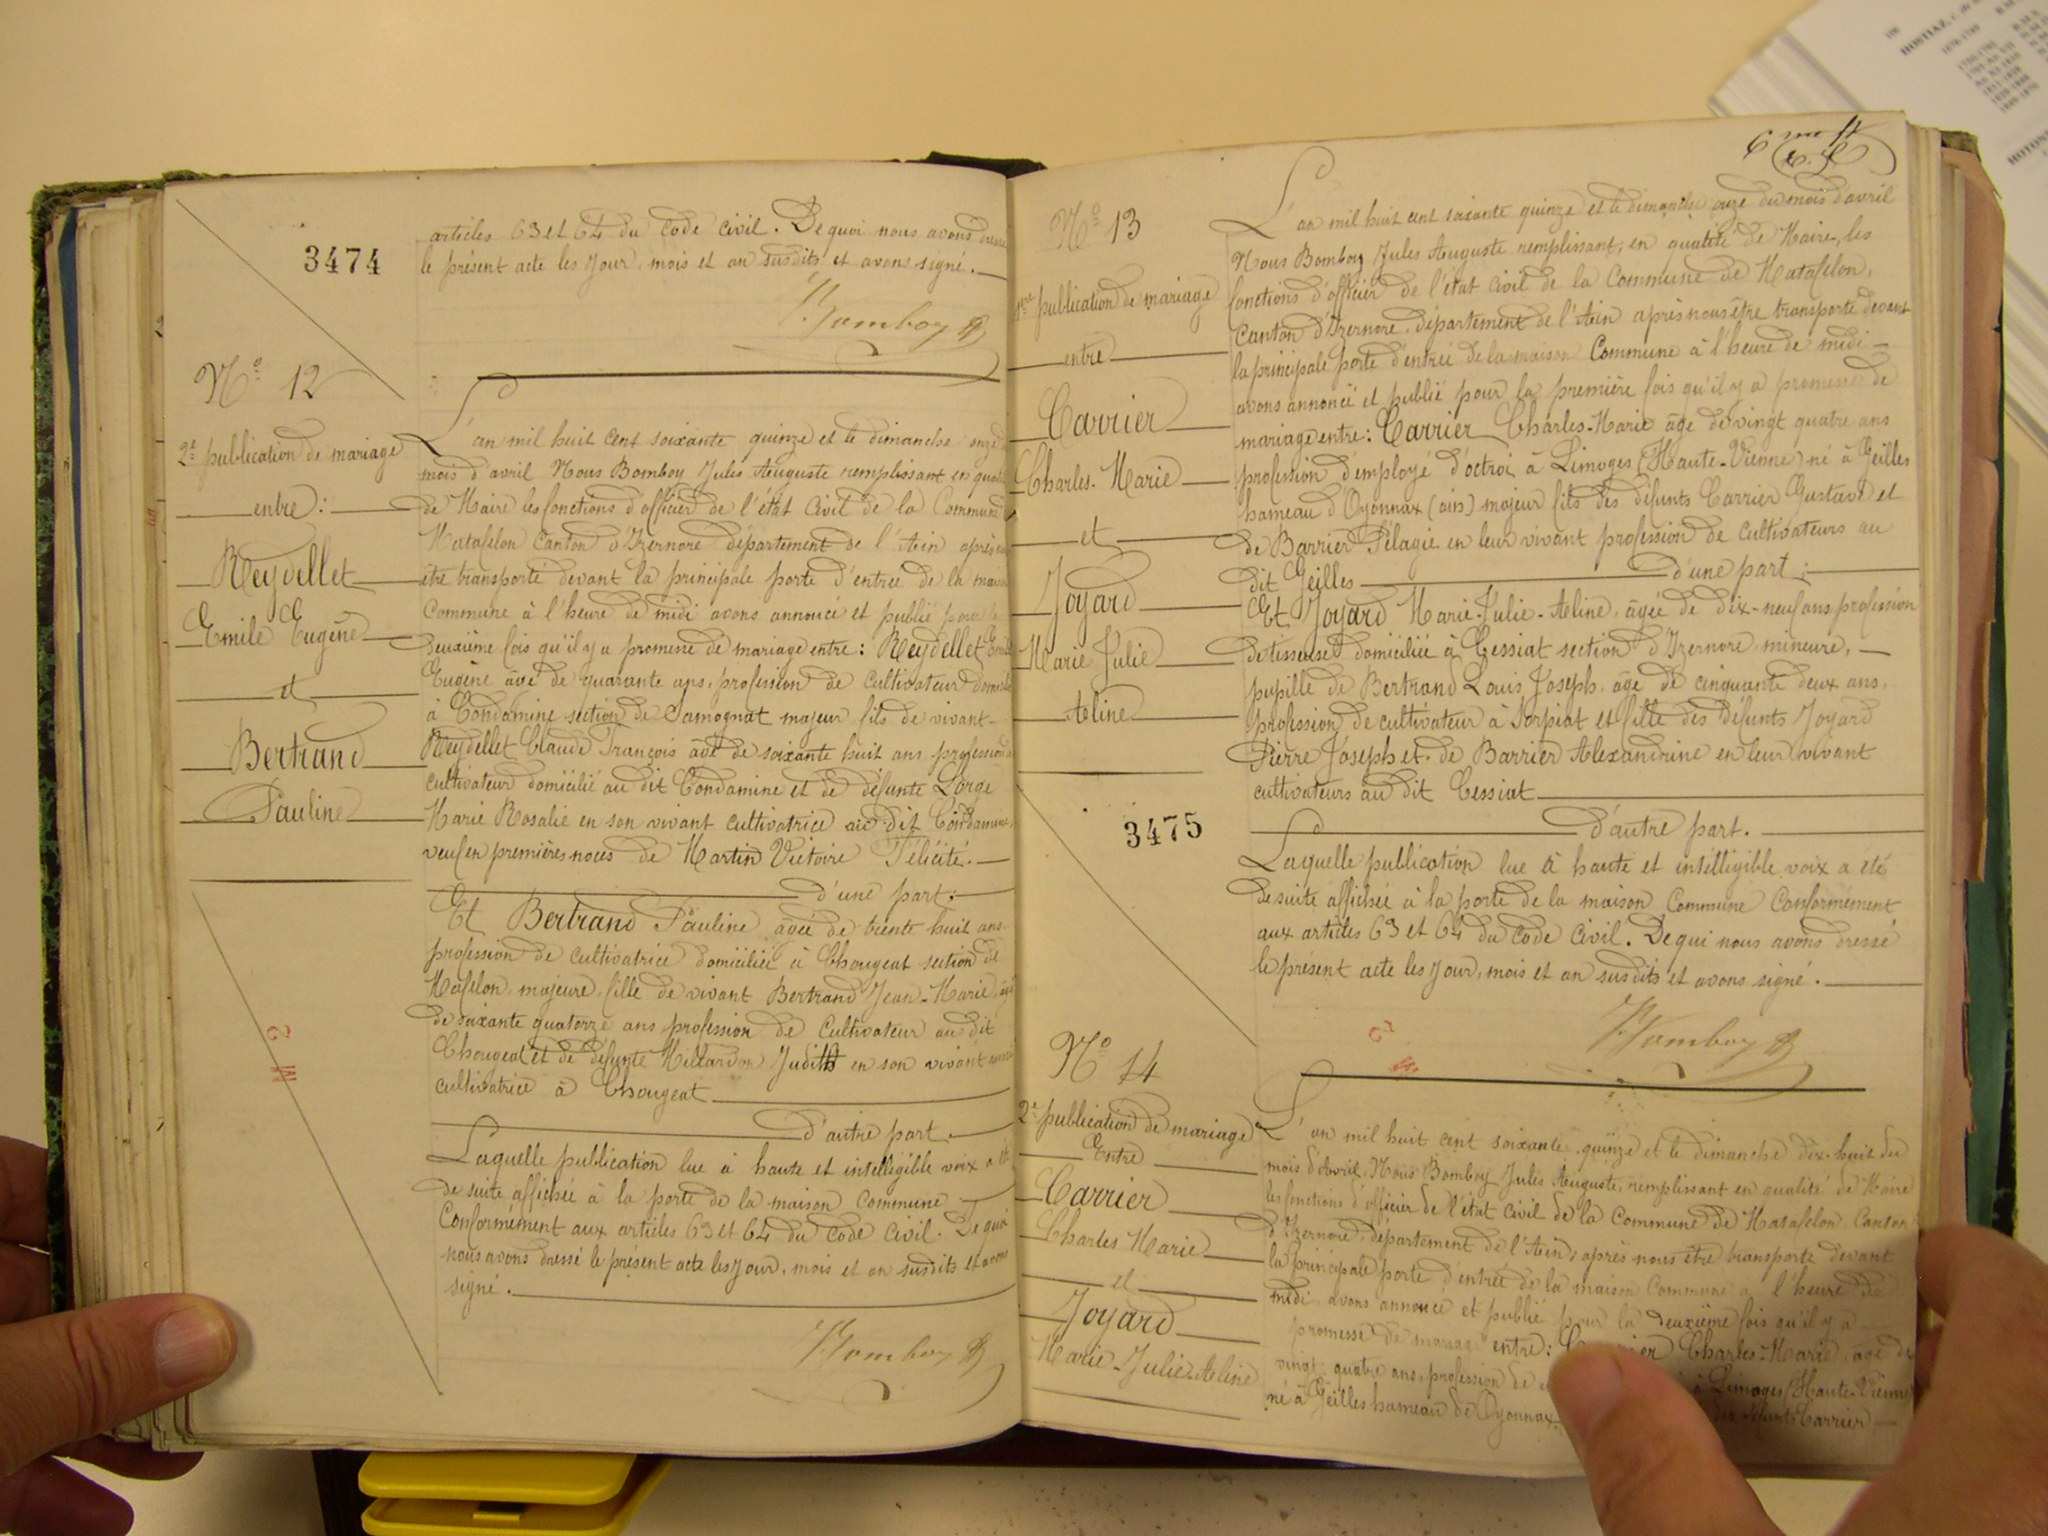 3474
articles 63 et 64 du Code civil. De quoi nous avons dressé
le présent acte les jour, mois et an susdits et avons signé.
Bomboy
N° 12
2e publication de mariage
entre :
Reydellet
Emile Eugène
et
Bertrand
Pauline
L'an mil huit cent soixante quinze et le dimanche onze
mois d'avril Nous Bomboy Jules Auguste remplissant en qualité
de Maire les fonctions d'officier de l'état civil de la Commune
Matafelon Canton d'Izernore département de l'Ain après
être transporté devant la principale porte d'entrée de la maison
Commune à l'heure de midi avons annoncé et publié pour la
deuxième fois qu'il y a promesse de mariage entre : Reydellet Emile
Eugène âgé de quarante ans, profession de cultivateur domicilié
à Condamine section de Samognat majeur fils de vivant
Reydellet Claude François âgé de soixante huit ans profession
cultivateur domicilié au dit Condamine et de défunte Lorge
Marie Rosalie en son vivant cultivatrice au dit Condamine,
veuf en premières noces de Martin Victoire Félicité.
d'une part :
Et Bertrand Pauline âgée de trente huit ans
profession de cultivatrice domiciliée à Chougeat section de
Mafelon, majeure, fille de vivant Bertrand Jean-Marie, âgé
de soixante quatorze ans profession de cultivateur au dit
Chougeat et de défunte Millardon Judith en son vivant
cultivatrice à Chougeat
d'autre part.
Laquelle publication lue à haute et intelligible voix a été
de suite affichée à la porte de la maison commune
Conformément aux articles 63 et 64 du Code civil. De quoi
nous avons dressé le présent acte les jour, mois et an susdits et avons
signé.
Bomboy
N° 13
1re publication de mariage
entre
Carrier
Charles-Marie
et
Joyard
Marie Julie
Aline
3475
L'an mil huit cent soixante quinze et le dimanche onze du mois d'avril
Nous Bomboy Jules Auguste remplissant, en qualité de Maire, les
fonctions d'officier de l'état civil de la Commune de Matafelon,
Canton d'Izernore, département de l'Ain après nous être transporté devant
la principale porte d'entrée de la maison Commune à l'heure de midi
avons annoncé et publié pour la première fois qu'il y a promesse de
mariage entre : Carrier Charles-Marie âgé de vingt quatre ans
profession d'employé d'octroi à Limoges (Haute-Vienne) né à Geilles
hameau d'Oyonnax (ain) majeur fils des défunts Carrier Gustave et
de Barrier Pélagie en leur vivant profession de cultivateurs au
dit Geilles d'une part :
Et Joyard Marie-Julie-Aline, âgée de dix-neuf ans profession
de tisseuse domiciliée à Cessiat section d'Izernore mineure,
pupille de Bertrand Louis Joseph, âgé de cinquante deux ans,
profession de cultivateur à Sorpiat et fille des défunts Joyard
Pierre Joseph et de Barrier Alexandrine en leur vivant
cultivateurs au dit Cessiat
d'autre part.
Laquelle publication lue à haute et intelligible voix a été
de suite affichée à la porte de la maison Commune Conformément
aux articles 63 et 64 du Code Civil. De qui nous avons dressé
le présent acte les jour, mois et an susdits et avons signé.
Bomboy
N° 14
2e publication de mariage
Entre
Carrier
Charles Marie
et
Joyard
Marie-Julie-Aline
L'an mil huit cent soixante quinze et le dimanche dix-huit du
mois d'avril, Nous Bomboy Jules Auguste, remplissant en qualité de Maire
les fonctions d'officier de l'état civil de la Commune de Matafelon Canton
d'Izernore, département de l'Ain, après nous être transporté devant
la principale porte d'entrée de la maison Commune à l'heure de
midi, avons annoncé et publié pour la deuxième fois qu'il y a
promesse de mariage entre : Charles-Marie, âgé de
vingt quatre ans, profession de à Limoges (Haute-Vienne
né à Geilles hameau de Oyonnax des défunts Carrier